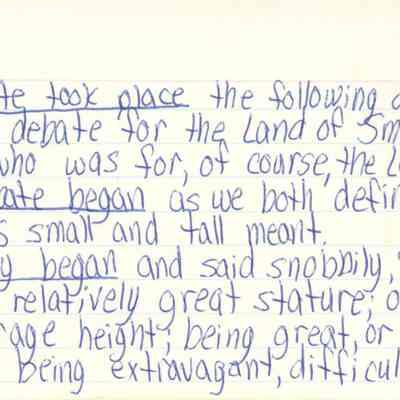 te took place the following
debate for the Land of Sm
who was for, of course, the L
ate began as we both defin
s small and tall meant.
y began and said snobbily, "
relatively great stature; o
rage height; being great, or
being extravagant, difficul